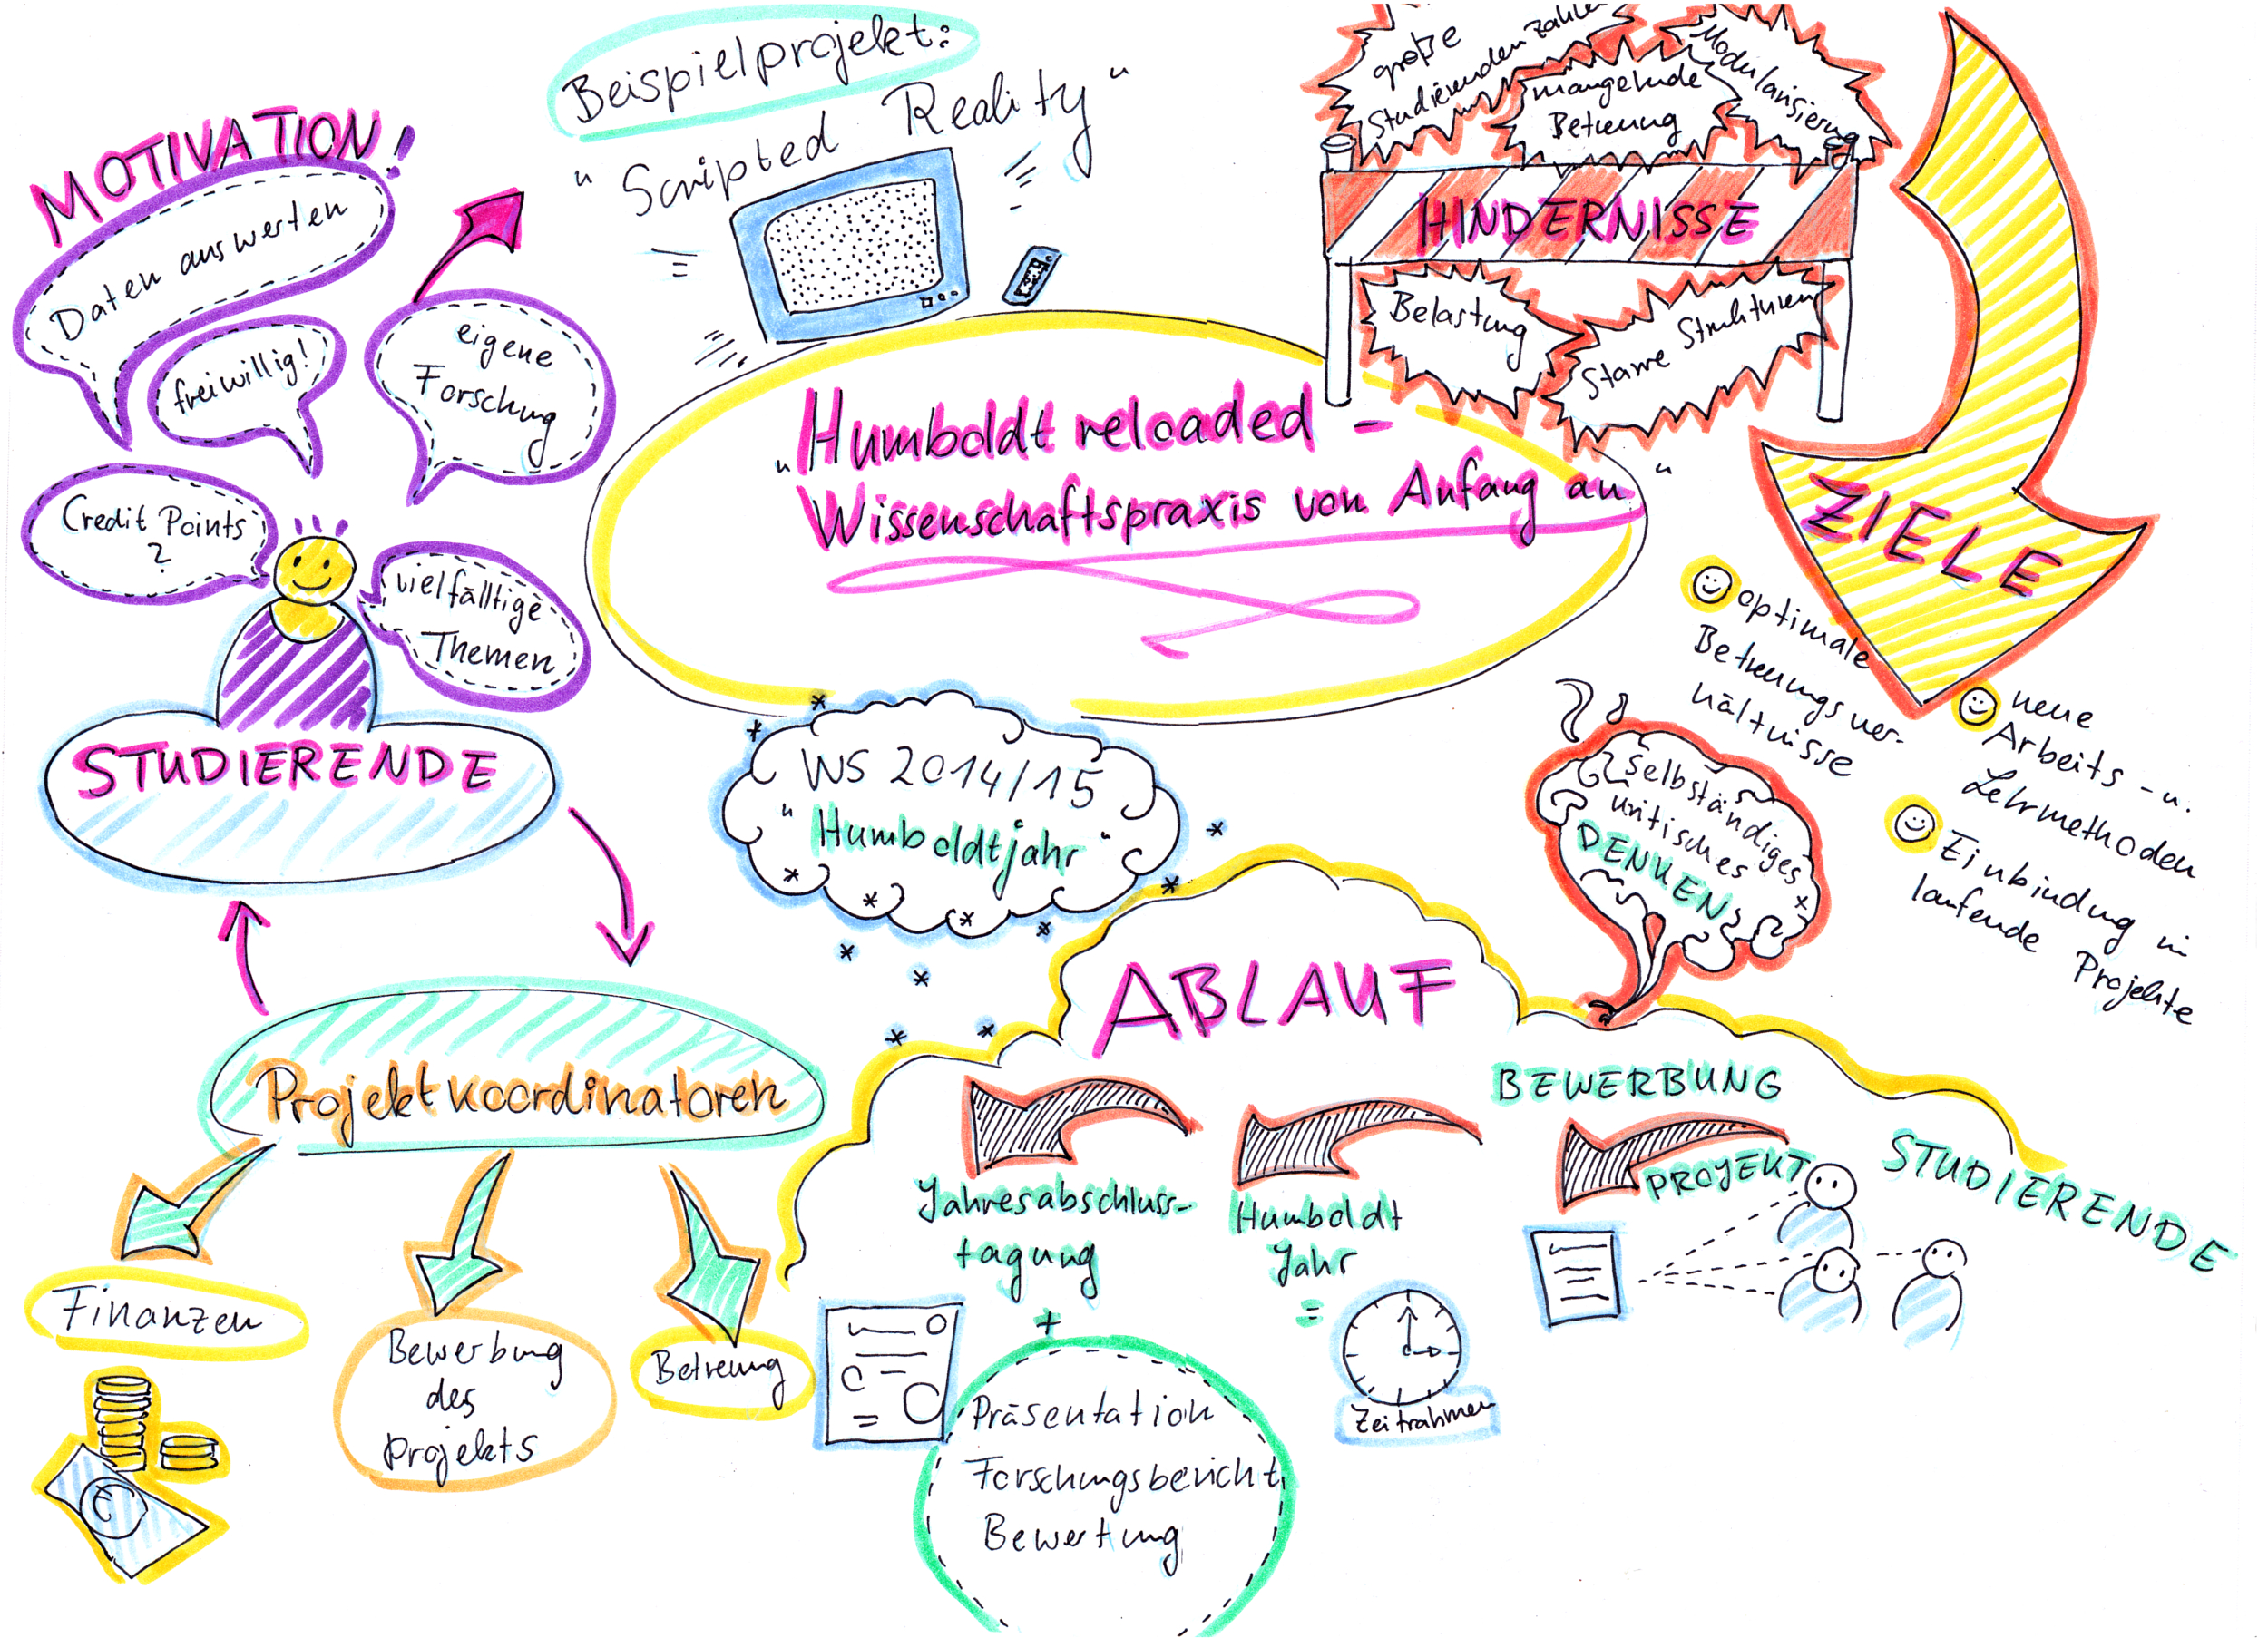 MOTIVATION!
Daten auswerten
freiwillig!
eigene
Forschung
Credit Points
?
vielfälltige
Themen
STUDIERENDE
Beispielprojekt:
"Scripted Reality"
große
Studierendenzahlen
mangelnde
Betreuung
Modularisierung
HINDERNISSE
Belastung
Starre Strukturen
ZIELE
"Humboldt reloaded -
Wissenschaftspraxis von Anfang an"
optimale
Betreuungsver-
hältnisse
neue
Arbeits- u.
Lehrmethoden
Einbindung in
laufende Projekte
selbständiges
kritisches
DENKEN
WS 2014/15
"Humboldtjahr"
Projektkoordinatoren
Finanzen
€
Bewerbung
des
Projekts
Betreuung
ABLAUF
BEWERBUNG
STUDIERENDE
PROJEKT
Humboldt
Jahr
=
Zeitrahmen
Jahresabschluss-
tagung
+
Präsentation
Forschungsbericht
Bewertung